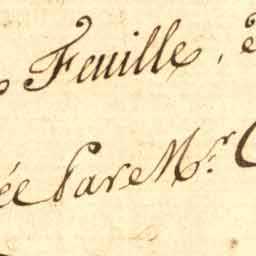 Feuille,
ée Par Mr.